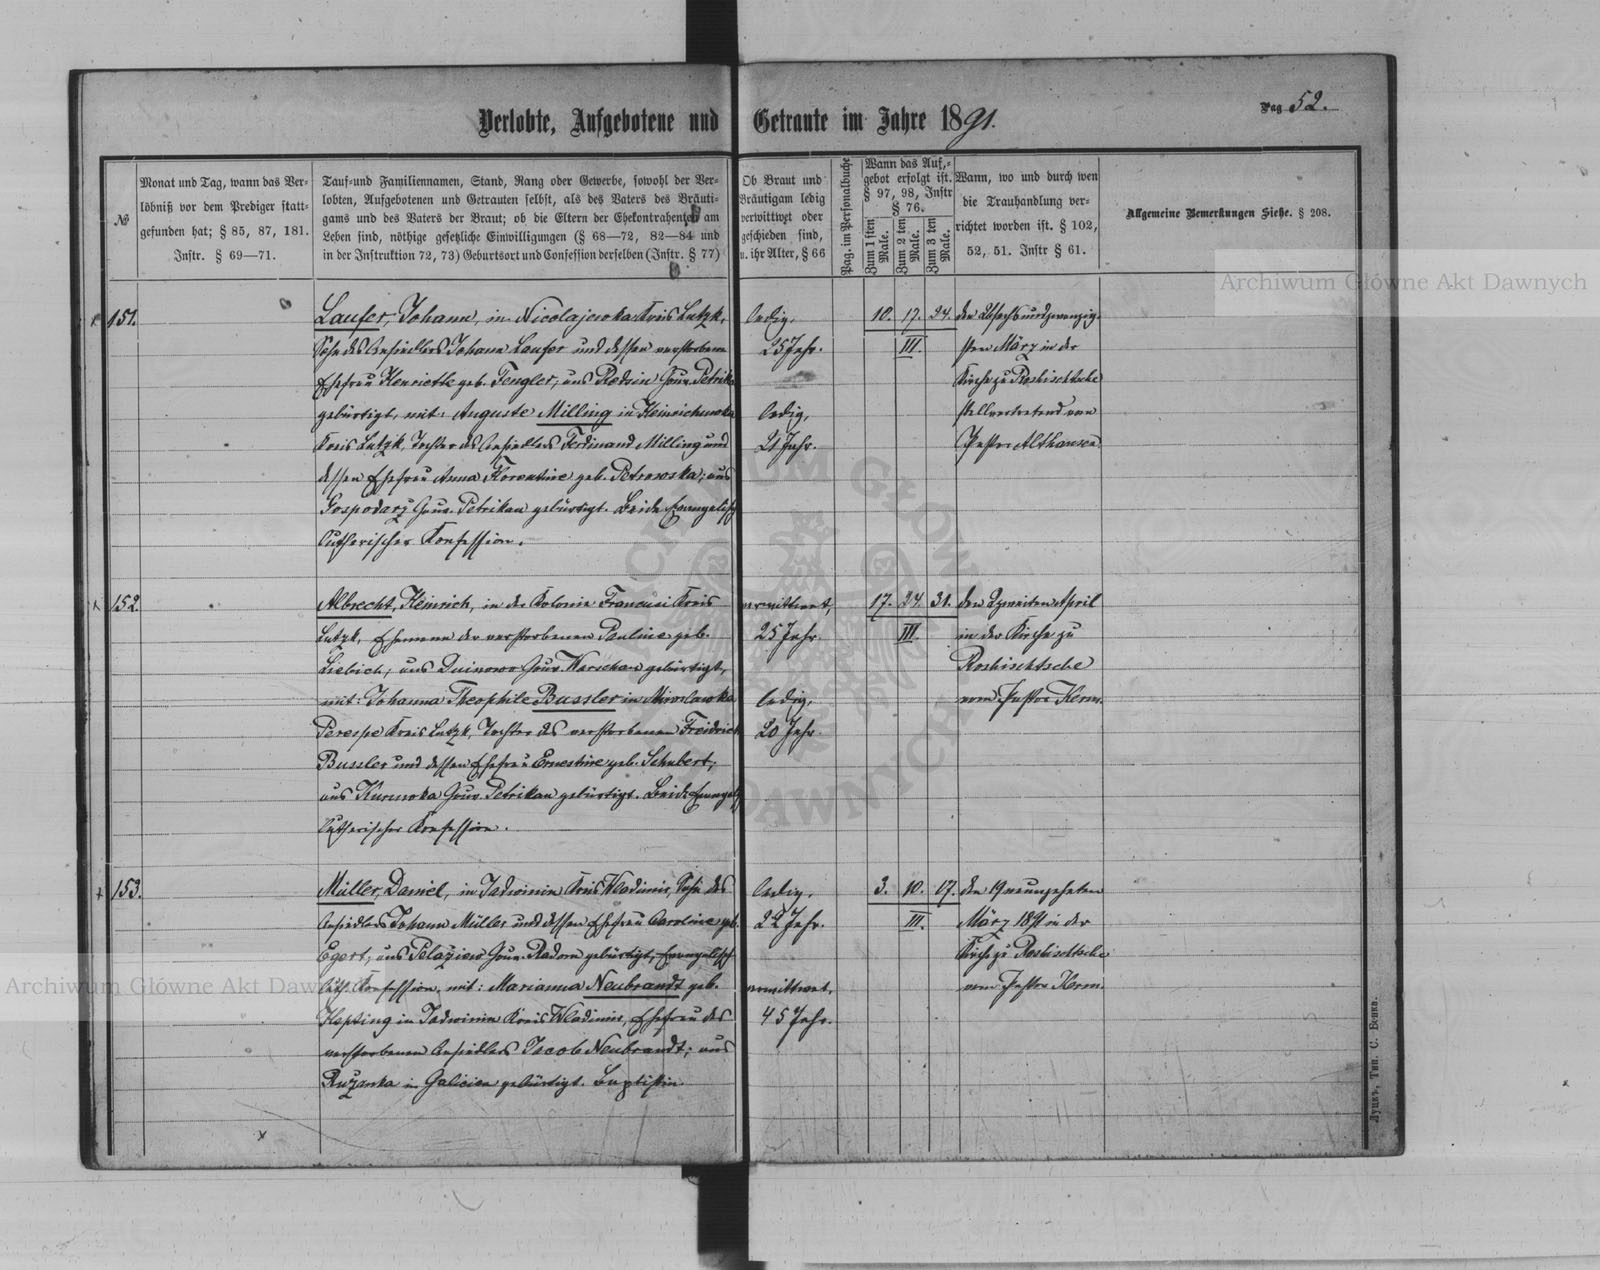 Pag 52.
Verlobte, Aufgebotene und Getraute im Jahre 1891.
№
Monat und Tag, wann das Ver-
löbniß vor dem Prediger statt-
gefunden hat; § 85, 87, 181.
Instr. § 69—71.
Tauf=und Familiennamen, Stand, Rang oder Gewerbe, sowohl der Ver-
lobten, Aufgebotenen und Getrauten selbst, als des Vaters des Bräuti-
gams und des Vaters der Braut; ob die Eltern der Ehekontrahenten am
Leben sind, nöthige gesetzliche Einwilligungen (§ 68—72, 82—84 und
in der Instruktion 72, 73) Geburtsort und Confession derselben (Instr. § 77)
Ob Braut und
Bräutigam ledig
verwittwet oder
geschieden sind,
u. ihr Alter, § 66
Pag. im Personalbuche
Wann das Auf-
gebot erfolgt ist.
§ 97, 98, Instr
§ 76.
Zum 1 sten Male.
Zum 2 ten Male.
Zum 3 ten Male.
Wann, wo und durch wen
die Trauhandlung ver-
richtet worden ist. § 102,
52, 51. Instr § 61.
Allgemeine Bemerkungen Siehe. § 208.
151.
Laufer, Johann, in Nicolajewka Kreis Lutzk,
Sohn des Ansiedlers Johann Laufer und dessen verstorbene
Ehefrau Henriette geb. Fengler; aus Redzin Gouv. Petrikau
gebürtigt, mit: Auguste Milling in Heinrichowka
Kreis Lutzk, Tochter des Ansiedlers Ferdinand Milling und
dessen Ehefrau Anna Florentine geb. Petrowska; aus
Gospodarz Gouv. Petrikau gebürtigt. Beide Evangelisch
Lutherischer Konfession.
ledig,
25 Jahr.
ledig,
21 Jahr.
10. 17. 24.
III.
den 26 sechsundzwanzig-
sten März in der
Kirche zu Roshischtsche
stellvertretend von
Pastor Althausen
152.
Albrecht, Heinrich, in der Kolonie Francusi Kreis
Lutzk, Ehemann der verstorbenen Pauline geb.
Liebich; aus Duinowo Gouv. Warschau gebürtigt,
mit: Johanna Theophile Bussler in Miroslawka
Perespe Kreis Lutzk, Tochter des verstorbenen Freidrich
Bussler und dessen Ehefrau Ernestine geb. Schubert;
aus Kurowka Gouv. Petrikau gebürtigt. Beide Evangelisch
Lutherischer Konfession.
verwittwet,
25 Jahr
ledig,
20 Jahr
17. 24. 31.
III.
den 2 zweiten April
in der Kirche zu
Roshischtsche
vom Pastor Kerm.
153.
Müller, Daniel, in Jadwinin Kreis Wladimir, Sohn des
Ansiedlers Johann Müller und dessen Ehefrau Caroline geb.
Egert; aus Pelagiew Gouv. Radom gebürtigt, Evangelisch
Luth. Konfession, mit: Marianna Neubrandt geb.
Hepting in Jadwinin Kreis Wladimir, Ehefrau des
verstorbenen Ansiedlers Jacob Neubrandt; aus
Ruzanka in Galicien gebürtigt. Baptistin.
ledig,
22 Jahr.
verwittwet,
45 Jahr.
3. 10. 17.
III.
den 19 neunzehnten
März 1891 in der
Kirche zu Roshischtsche
vom Pastor Kerm.
Луцкъ, Тип. С. Бенка.
Archiwum Główne Akt Dawnych
Archiwum Główne Akt Dawnych
ARCHIWUM GŁÓWNE AKT DAWNYCH